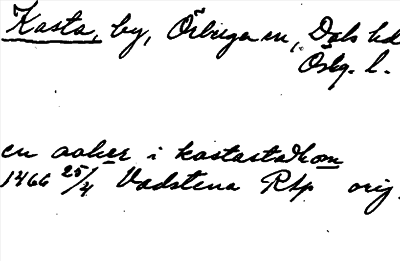 Kasta, by, Örbergaen, Dals hd
Östg. l.
en aaker i kastastadhom
1466 25/4 Vadstena Rtp orig.